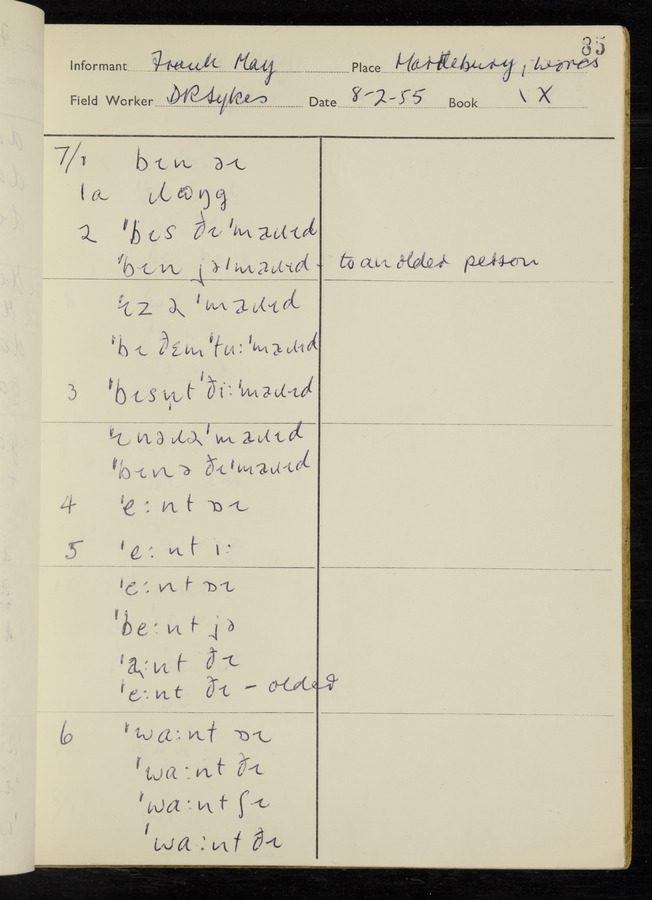 85
Informant Frank May Place Hartlebury, Worcs
Field Worker DRSykes Date 8-2-55 Book IX
7/1 bɪn əɪ
1a
2 'bɪs ðɪ 'maɹɪd
'bɪn jə 'maɹɪd - to an older person
'ɪz ə 'maɹɪd
'bɪ ðɛm 'tu: 'maɹɪd
3 'bɪsn̩t 'ði: 'maɹɪd
'ɪnəɹə 'maɹɪd
'bɪnə ðɪ 'maɹɪd
4 'e:nt ɒɪ
5 'e:nt i:
'e:nt ɒɪ
'be:nt jə
'a:nt ðɪ
'e:nt ðɪ - older
6 'wa:nt ɒɪ
'wa:nt ðɪ
'wa:nt ʃɪ
'wa:nt ðɪ